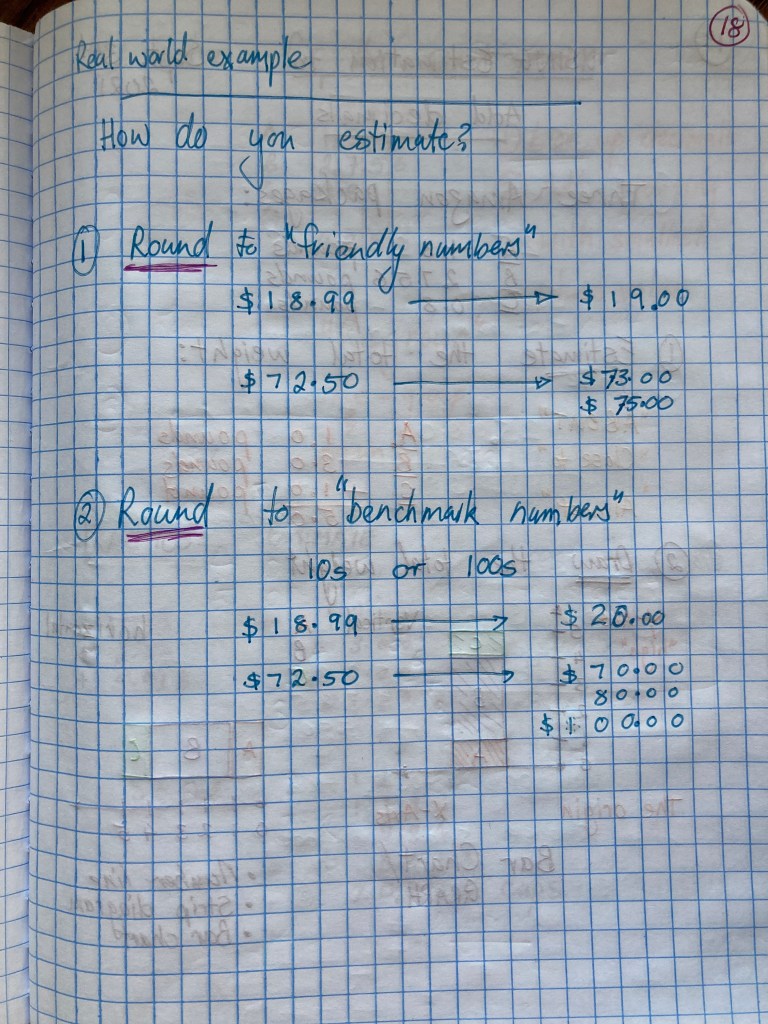 18
Real world example
How do you estimate?
① Round to "friendly numbers"
$18.99 → $19.00
$72.50 → $73.00
$75.00
② Round to "benchmark numbers"
10s or 100s
$18.99 → $20.00
$72.50 → $70.00
80.00
$100.00